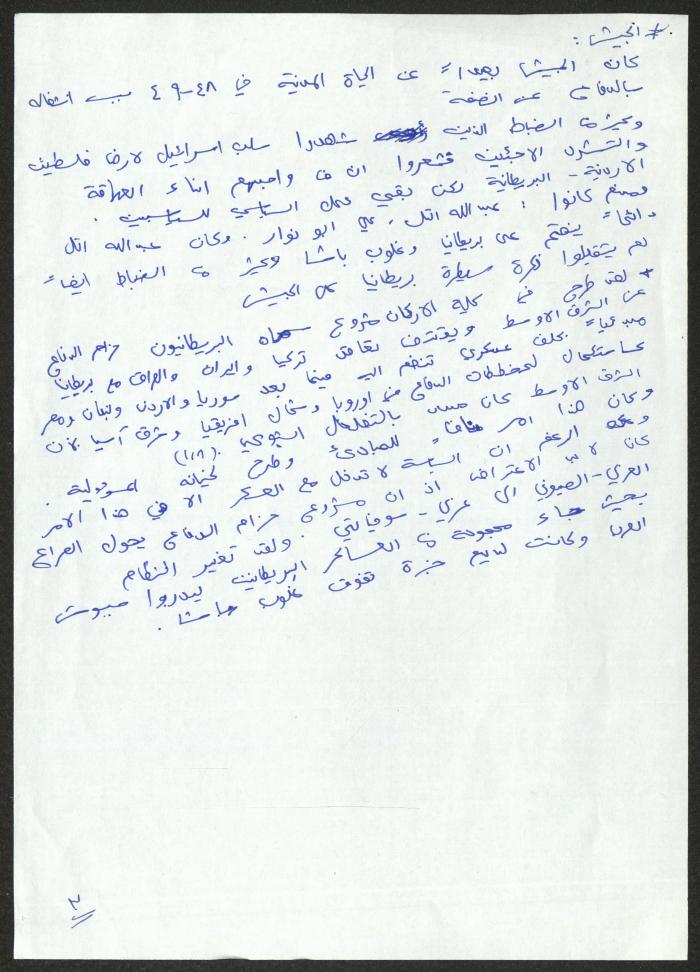 * الجيش :
كان الجيش بعيداً عن الحياة المدنية في ٤٨-٤٩ بسبب انشغاله
بالدفاع عن الضفة
وكثير من الضباط الذين شهدوا سلب اسرائيل لارض فلسطين
والتشرد اللاجئين فشعروا ان من واجبهم انهاء العلاقة
الاردنية - البريطانية لكن بقي العمل السياسي للسياسيين .
ومنهم كانوا : عبدالله التل ، علي ابو نوار . وكان عبدالله التل
دائماً ينقم على بريطانيا وغلوب باشا وكثير من الضباط ايضاً
لم يتقبلوا فكرة سيطرة بريطانيا على الجيش
* لقد طرح في كلية الاركان مشروع سماه البريطانيون حزام الدفاع
عن الشرق الاوسط ويقترض تعاقد تركيا وايران والعراق مع بريطانيا
مبدئياً بحلف عسكري تنضم اليه فيما بعد سوريا والاردن ولبنان ومصر
كاستكمال لمخططات الدفاع في اوروبا وشمال افريقيا وشرق آسيا لأن
الشرق الاوسط كان مهدد بالتغلغل الشيوعي (١١٨)
وكان هذا امر منافٍ للمبادئ وطرح لخيانة المسؤولية .
وعلى الرغم ان السياسة لا تدخل مع العسكر الا في هذا الامر
كان لا بد الاعتراض اذ ان مشروع حزام الدفاع يحول الصراع
العربي - الصهيوني الى عربي - سوفياتي . ولقد تغير النظام
بحيث جاء مجموعة من العساكر البريطانيين ليدربوا جيوش
العرب وكانت لديهم خبرة تفوق غلوب باشا .
٣